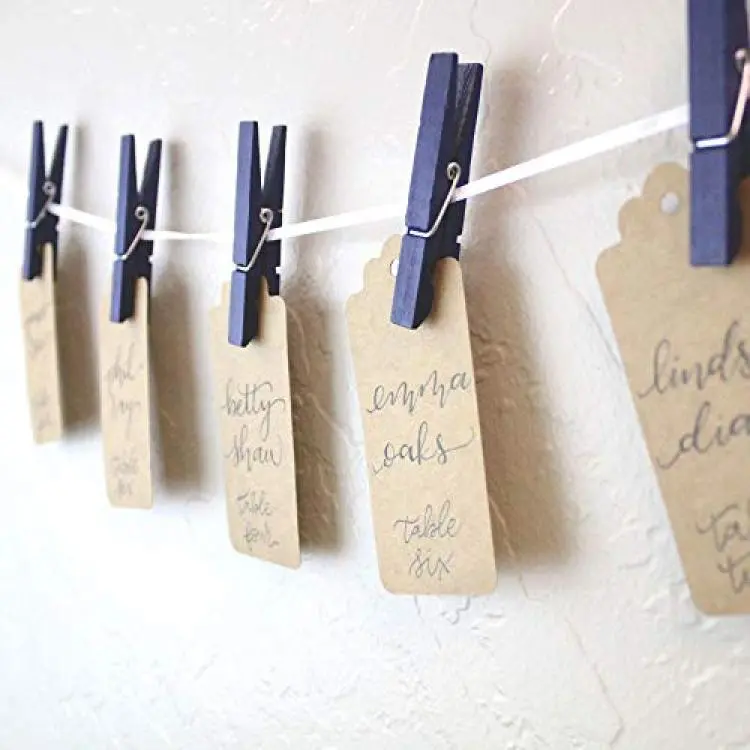 phil
table
six
betty
shaw
table
four
emma
oaks
table
six
linds
dia
ta